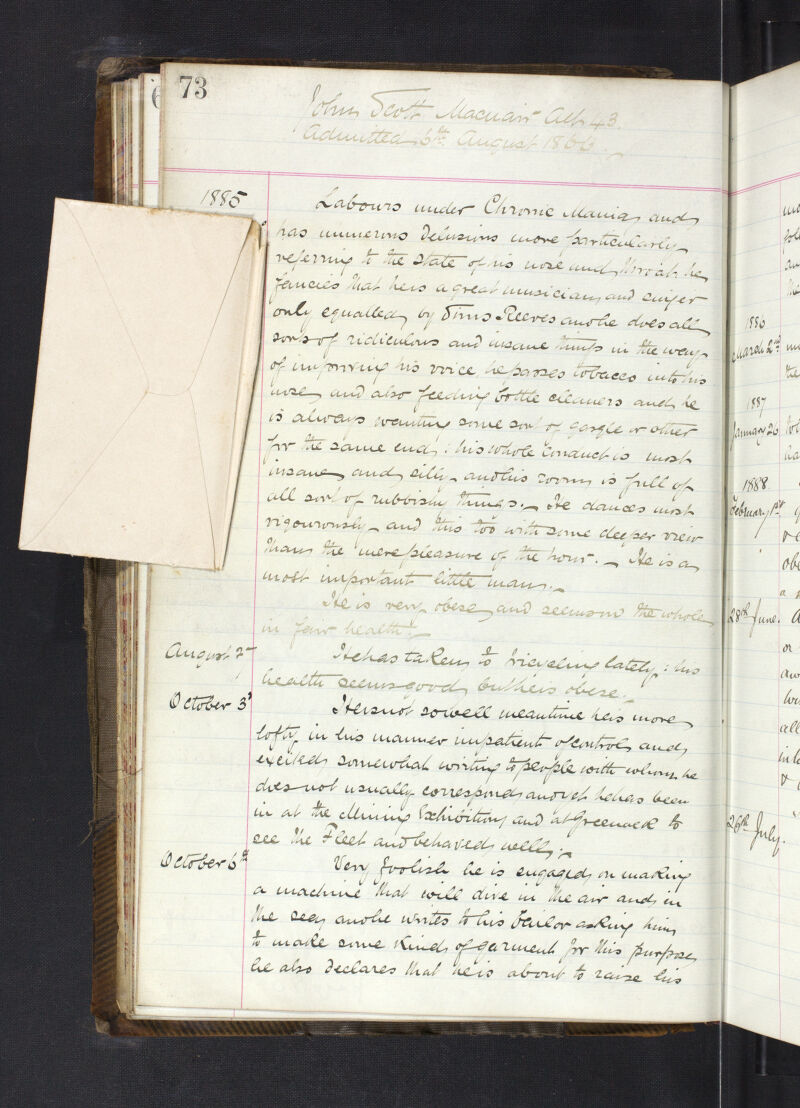 73
John Scott Macnair Aet 43.
Admitted 6th August 1866.
1885
Labours under Chronic Mania and
has numerous Delusions more particularly
referring to the state of his nose and throat he
fancies that he is a great musician and singer
only equalled by Sims Reeves and he does all
sorts of ridiculous and insane things in the way
of improving his voice, he passes tobacco into his
nose, and also feeding bottle cleaners and he
is always wanting some sort of gargle or other
for the same end: his whole conduct is most
insane and silly and his room is full of
all sort of rubbishy things. He dances most
vigourously and this too with some deeper view
than the mere pleasure of the hour. He is a
most important little man.
He is very obese and seems on the whole
in fair health.
August 2nd
He has taken to tricycling lately: his
health seems good but he is obese.
October 3d
He is not so well meantime he is more
lofty in his manner impatient of control and
excited somewhat writing to people with whom he
does not usually correspond and yet he has been
in at the Mining Exhibition and at Greenock to
see the Fleet and behaved well.
October 6th
Very foolish he is engaged in making
a machine that will dive in the air and in
the sea and he writes to his Tailor asking him
to make some kind of garment for this purpose
he also declares that he is about to raise his
1886
March 2nd
1887
January 20
1888
February 1st
28th June.
26th July.